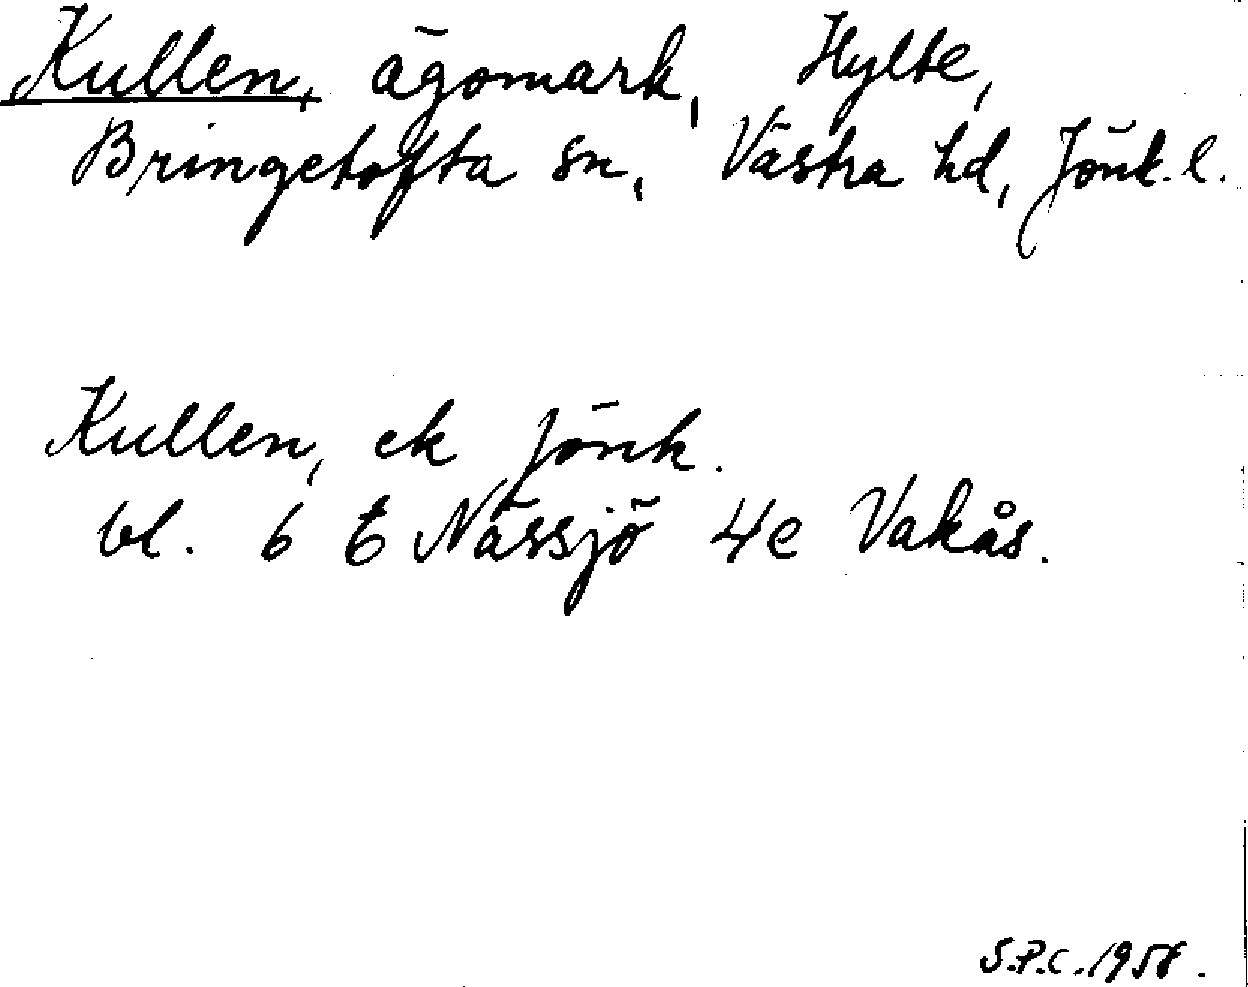 Kullen, ägomark, Hylte,
Bringetofta sn, Västra hd, Jönk. l.
Kullen, ek Jönk.
bl. 6 E Nässjö 4e Vakås.
S.P.C. 1958.